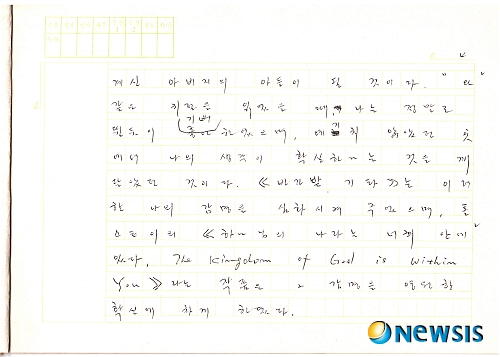 계신 아버지의 아들이 될 것이다." 와
같은 읽었을 때, 나는 정말로
기뻐 하였으며, 예기치 않았던 곳
에서 나의 생각이 확실하다는 것을 깨
닫았던 것이다. 《바가발 기타》는 이러
한 나의 감명을 심화시켜 주었으며, 톨
스토이의 《하느님의 나라는 너희 안에
있다, The Kingdom of God is within
You》 라는 작품은 그 감명을
확신에 차게 하였다.
NEWSIS